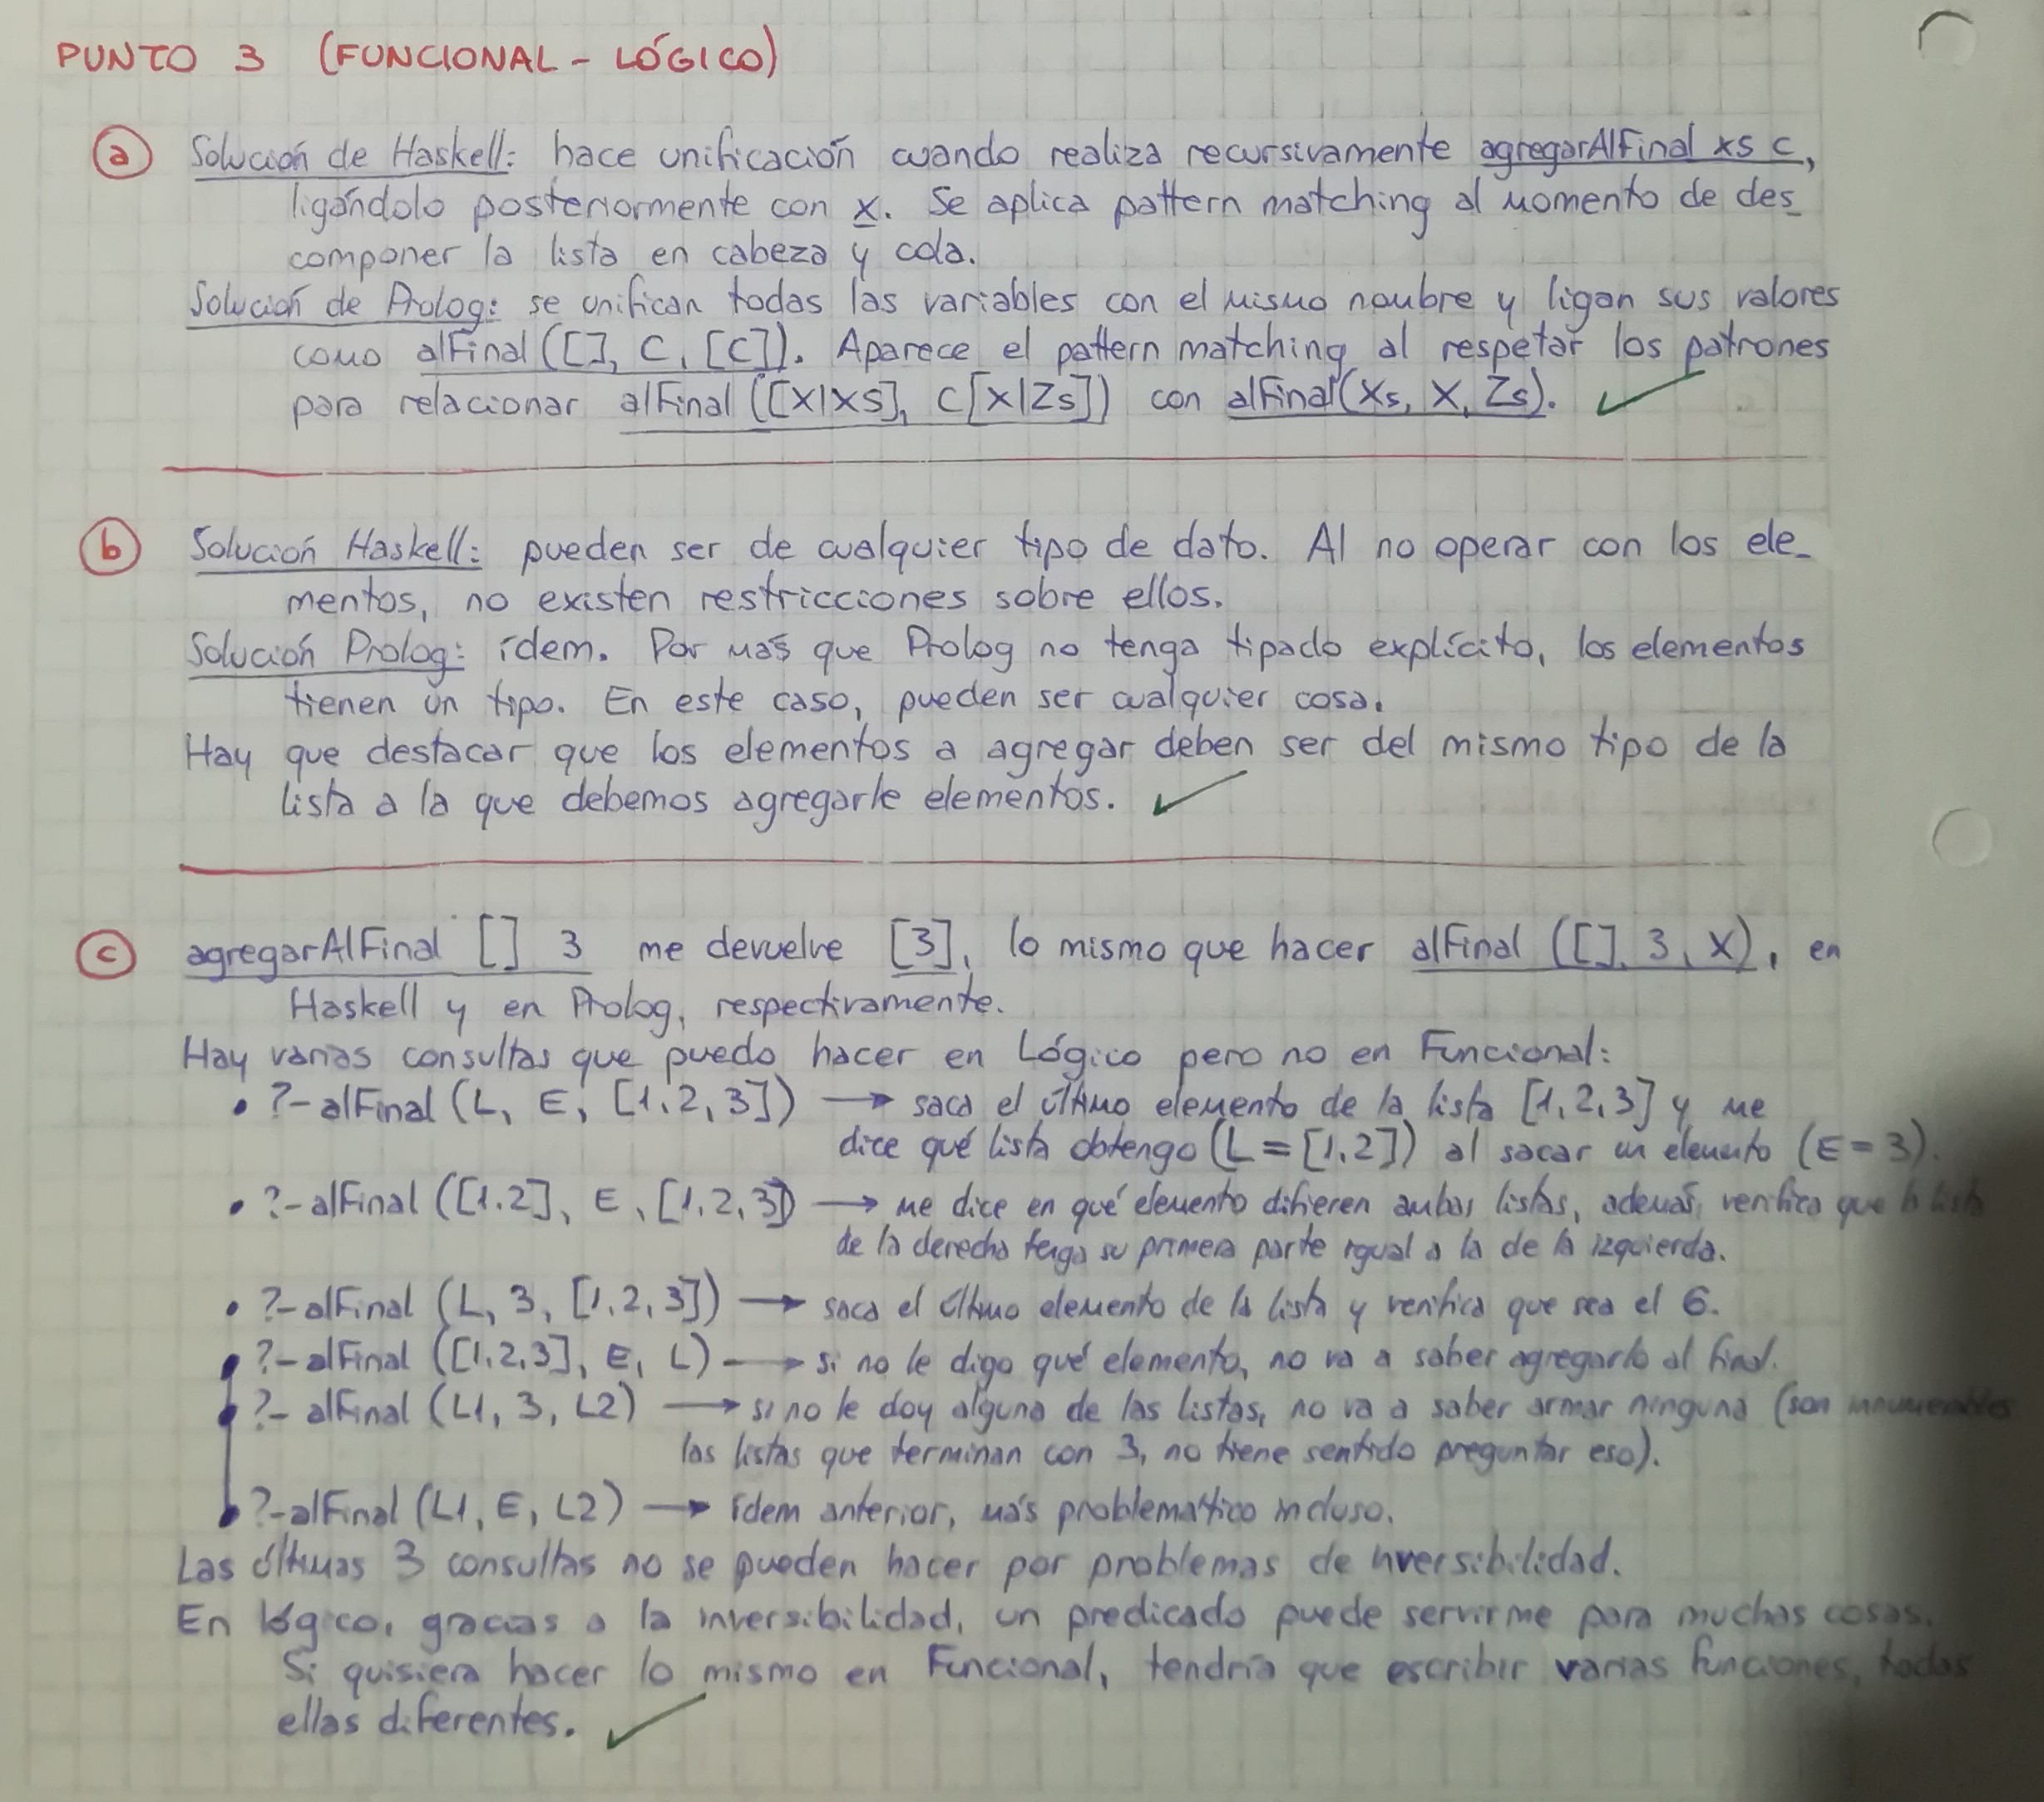 PUNTO 3 (FUNCIONAL - LÓGICO)
a Solución de Haskell: hace unificación cuando realiza recursivamente agregarAlFinal xs c,
ligándolo posteriormente con x. Se aplica pattern matching al momento de des_
componer la lista en cabeza y cola.
Solución de Prolog: se unifican todas las variables con el mismo nombre y ligan sus valores
como alFinal ([], C, [C]). Aparece el pattern matching al respetar los patrones
para relacionar alFinal ([X|XS], C[X|Zs]) con alFinal(Xs, X, Zs).
b Solución Haskell: pueden ser de cualquier tipo de dato. Al no operar con los ele_
mentos, no existen restricciones sobre ellos.
Solución Prolog: ídem. Por más que Prolog no tenga tipado explícito, los elementos
tienen un tipo. En este caso, pueden ser cualquier cosa.
Hay que destacar que los elementos a agregar deben ser del mismo tipo de la
lista a la que debemos agregarle elementos.
c agregarAlFinal [] 3 me devuelve [3], lo mismo que hacer alFinal ([], 3, X), en
Haskell y en Prolog, respectivamente.
Hay varias consultas que puedo hacer en Lógico pero no en Funcional:
• ?- alFinal (L, E, [1,2,3]) → saca el último elemento de la lista [1,2,3] y me
dice qué lista obtengo (L = [1,2]) al sacar un elemento (E = 3).
• ?- alFinal ([1,2], E, [1,2,3]) → me dice en qué elemento difieren ambas listas, además, verifica que la lista
de la derecha tenga su primera parte igual a la de la izquierda.
• ?- alFinal (L, 3, [1,2,3]) → saca el último elemento de la lista y verifica que sea el 6.
• ?- alFinal ([1,2,3], E, L) → si no le digo qué elemento, no va a saber agregarlo al final.
• ?- alFinal (L1, 3, L2) → si no le doy alguna de las listas, no va a saber armar ninguna (son innumerables
las listas que terminan con 3, no tiene sentido preguntar eso).
• ?- alFinal (L1, E, L2) → ídem anterior, más problemático incluso.
Las últimas 3 consultas no se pueden hacer por problemas de inversibilidad.
En lógico, gracias a la inversibilidad, un predicado puede servirme para muchas cosas.
Si quisiera hacer lo mismo en Funcional, tendría que escribir varias funciones, todas
ellas diferentes.